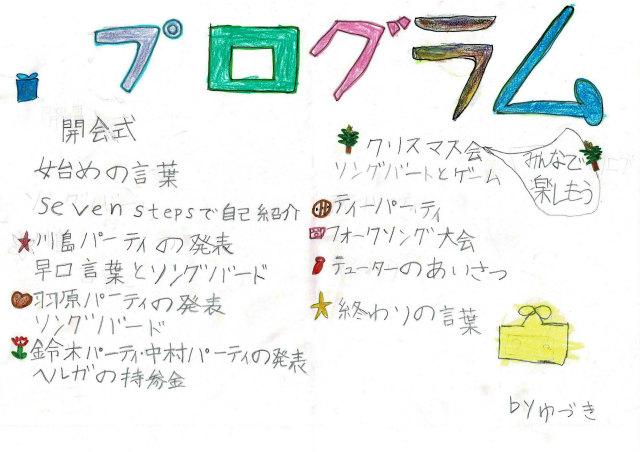 プログラム
開会式
始めの言葉
seven stepsで自己紹介
川島パーティの発表
早口言葉とソングバード
羽原パーティの発表
ソングバード
鈴木パーティ・中村パーティの発表
ヘルガの持参金
クリスマス会
ソングバードとゲーム
みんなで
楽しもう
ティーパーティ
フォークソング大会
テューターのあいさつ
終わりの言葉
byゆづき